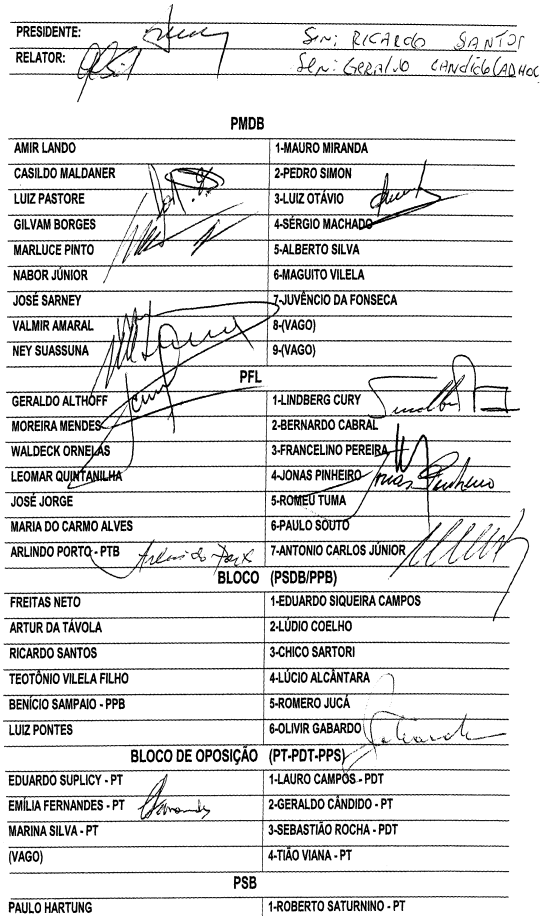 PRESIDENTE: Sen: RICARDO SANTOS
RELATOR: Sen: GERALDO CANDIDO (ADHOC)
PMDB
AMIR LANDO 1-MAURO MIRANDA
CASILDO MALDANER 2-PEDRO SIMON
LUIZ PASTORE 3-LUIZ OTÁVIO
GILVAM BORGES 4-SÉRGIO MACHADO
MARLUCE PINTO 5-ALBERTO SILVA
NABOR JÚNIOR 6-MAGUITO VILELA
JOSÉ SARNEY 7-JUVÊNCIO DA FONSECA
VALMIR AMARAL 8-(VAGO)
NEY SUASSUNA 9-(VAGO)
PFL
GERALDO ALTHOFF 1-LINDBERG CURY
MOREIRA MENDES 2-BERNARDO CABRAL
WALDECK ORNELAS 3-FRANCELINO PEREIRA
LEOMAR QUINTANILHA 4-JONAS PINHEIRO Jonas Pinheiro
JOSÉ JORGE 5-ROMEU TUMA
MARIA DO CARMO ALVES 6-PAULO SOUTO
ARLINDO PORTO - PTB Arlindo Porto 7-ANTONIO CARLOS JÚNIOR
BLOCO (PSDB/PPB)
FREITAS NETO 1-EDUARDO SIQUEIRA CAMPOS
ARTUR DA TÁVOLA 2-LÚDIO COELHO
RICARDO SANTOS 3-CHICO SARTORI
TEOTÔNIO VILELA FILHO 4-LÚCIO ALCÂNTARA
BENÍCIO SAMPAIO - PPB 5-ROMERO JUCÁ
LUIZ PONTES 6-OLIVIR GABARDO
BLOCO DE OPOSIÇÃO (PT-PDT-PPS)
EDUARDO SUPLICY - PT 1-LAURO CAMPOS - PDT
EMÍLIA FERNANDES - PT 2-GERALDO CÂNDIDO - PT
MARINA SILVA - PT 3-SEBASTIÃO ROCHA - PDT
(VAGO) 4-TIÃO VIANA - PT
PSB
PAULO HARTUNG 1-ROBERTO SATURNINO - PT